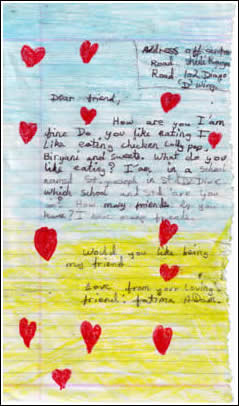 Address off
Road
Road 102
D Wing
Dear friend,
How are you I am
fine Do, you like eating I
Like eating chicken Lolly pop,
Biryani and sweets. What do you
like eating? I am, in a school
named St. Joseph in St
Which school and Std are you
How many friends do you
have? I have many friends.
Would you like being
my friend
Love from your Loving
friend: fatima